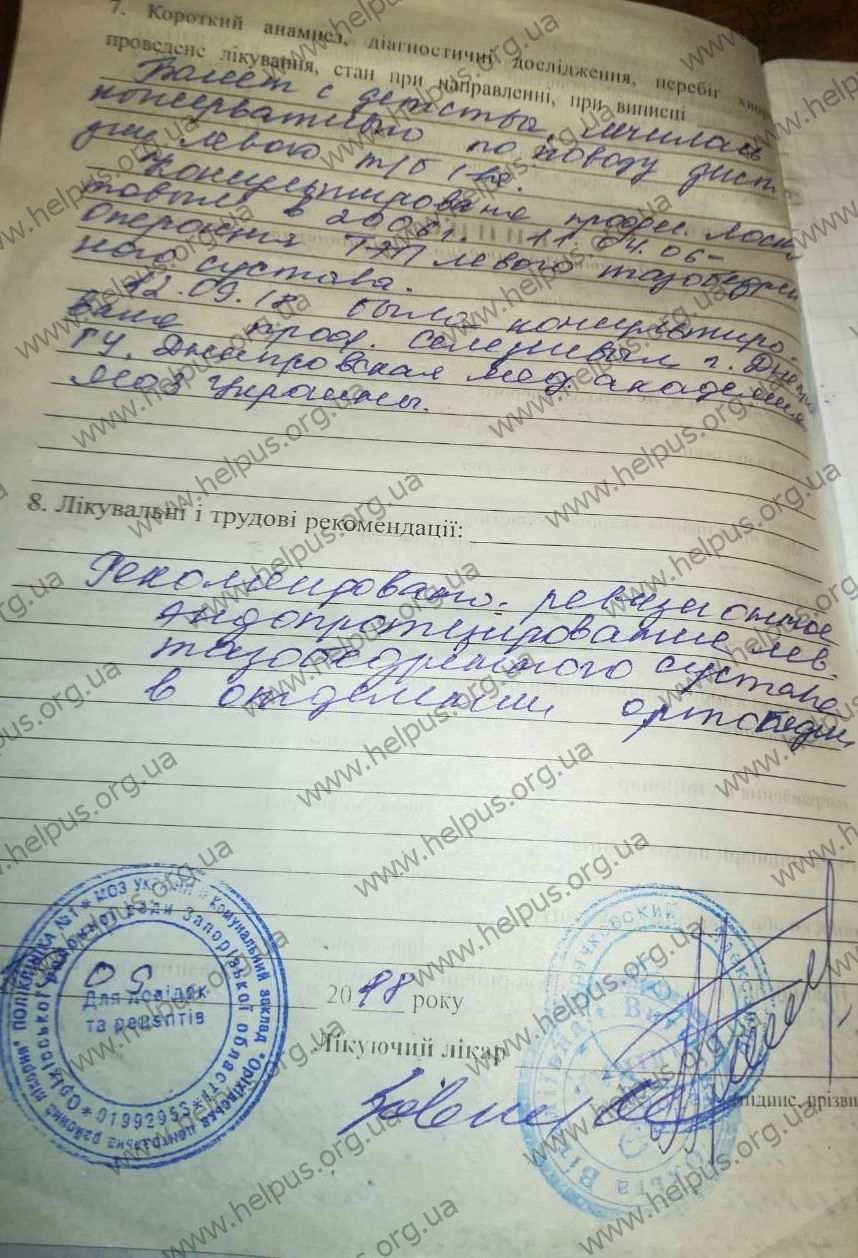 7. Короткий анамнез, діагностичні дослідження, перебіг хвор
проведене лікування, стан при направленні, при виписці
Болеет с детства, лечилась
консервативно по поводу дисп
зии левого т/б
Консультирована профес. Лоск
товым в 2006г. 11.04.06-
операция ТЭП левого тазобедрен
ного сустава.
12.09.18 была консультиро-
вана проф. г. Днепр
ГУ. Днепровская мед. академия
Моз Украины.
8. Лікувальні і трудові рекомендації:
Рекомендовано: ревизионное
эндопротезирование лев.
тазобедренного сустава
в отделении ортопедии
09
20 18 року
Лікуючий лікар
підпис, прізви
МОЗ України * Комунальний заклад "Оріхівська центральна районна лікарня" ПОЛІКЛІНІКА №1 *
Оріхівської районної ради Запорізької області * 01992955 *
Для довідок
та рецептів
www.helpus.org.ua